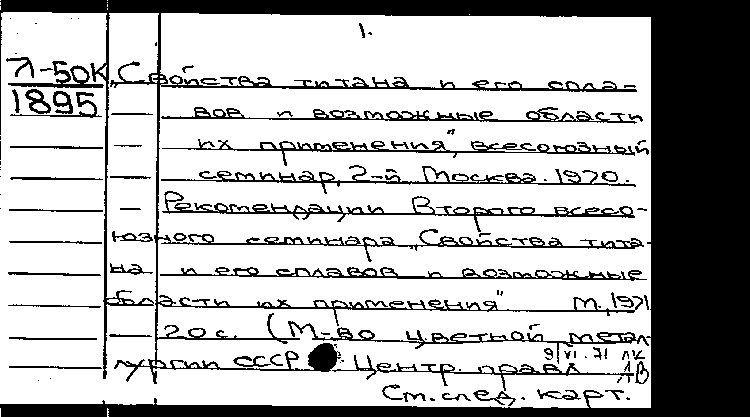 1.
Л-50К „Свойства титана и его спла-
1895 вов и возможные области
их применения", всесоюзный
семинар, 2-й. Москва. 1970.
Рекомендации Второго всесо-
юзного семинара „Свойства тита-
на и его сплавов и возможные
области их применения" М., 1971
20 с. (М-во цветной метал
лургии СССР Центр. правл
9/VI.71 ЛК
ЛВ
См. след. карт.